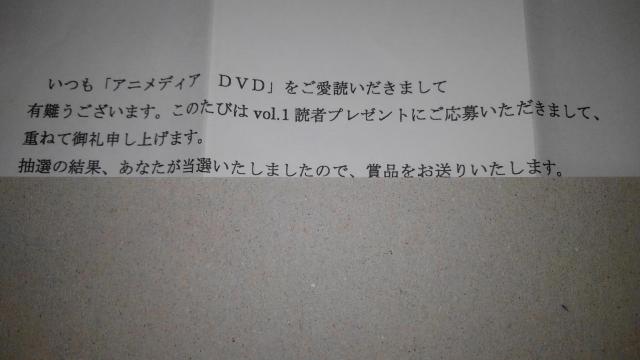 いつも「アニメディア　ＤＶＤ」をご愛読いだきまして
有難うございます。このたびは vol.1 読者プレゼントにご応募いただきまして、
重ねて御礼申し上げます。
抽選の結果、あなたが当選いたしましたので、賞品をお送りいたします。